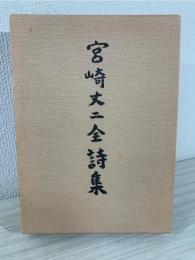 宮崎丈二全詩集